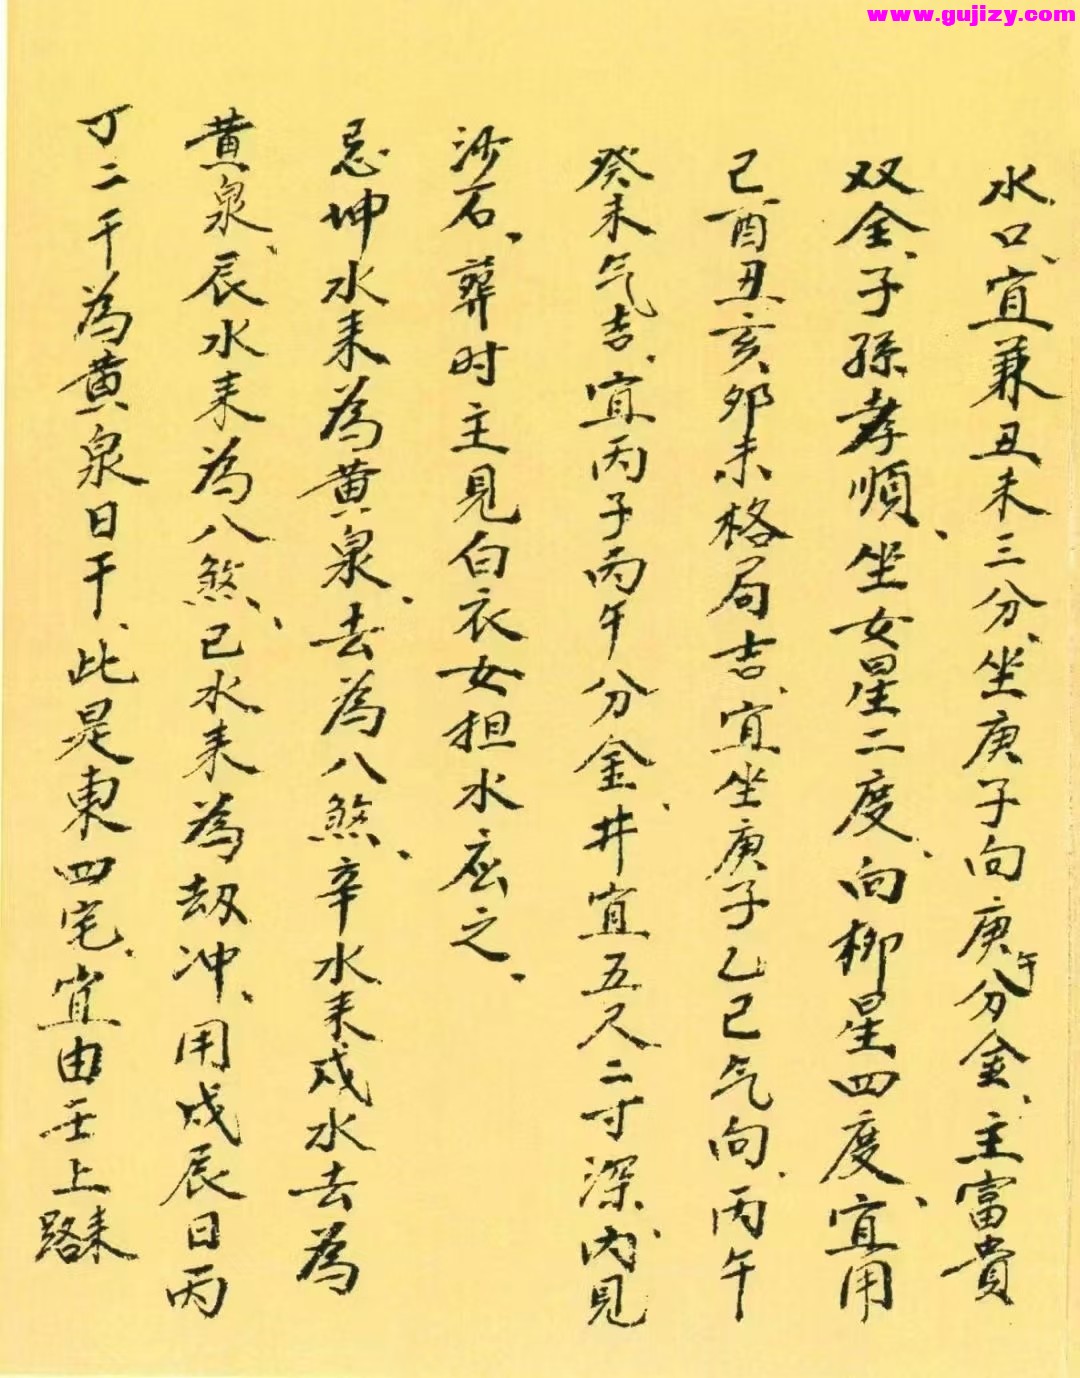 www.gujizy.com
水口、宜兼丑未三分、坐庚子向庚午分金、主富貴
双全、子孫孝順、坐女星二度、向柳星四度、宜用
己酉丑亥卯未格局吉、宜坐庚子乙己气向、丙午
癸未气吉、宜丙子丙午分金、井宜五尺二寸深、内見
沙石、葬时主見白衣女担水应之、
忌坤水来為黄泉、去為八煞、辛水来戍水去為
黄泉、辰水来為八煞、已水来為劫冲、用戍辰日丙
丁二干為黄泉日干、此是東四宅、宜由壬上路来